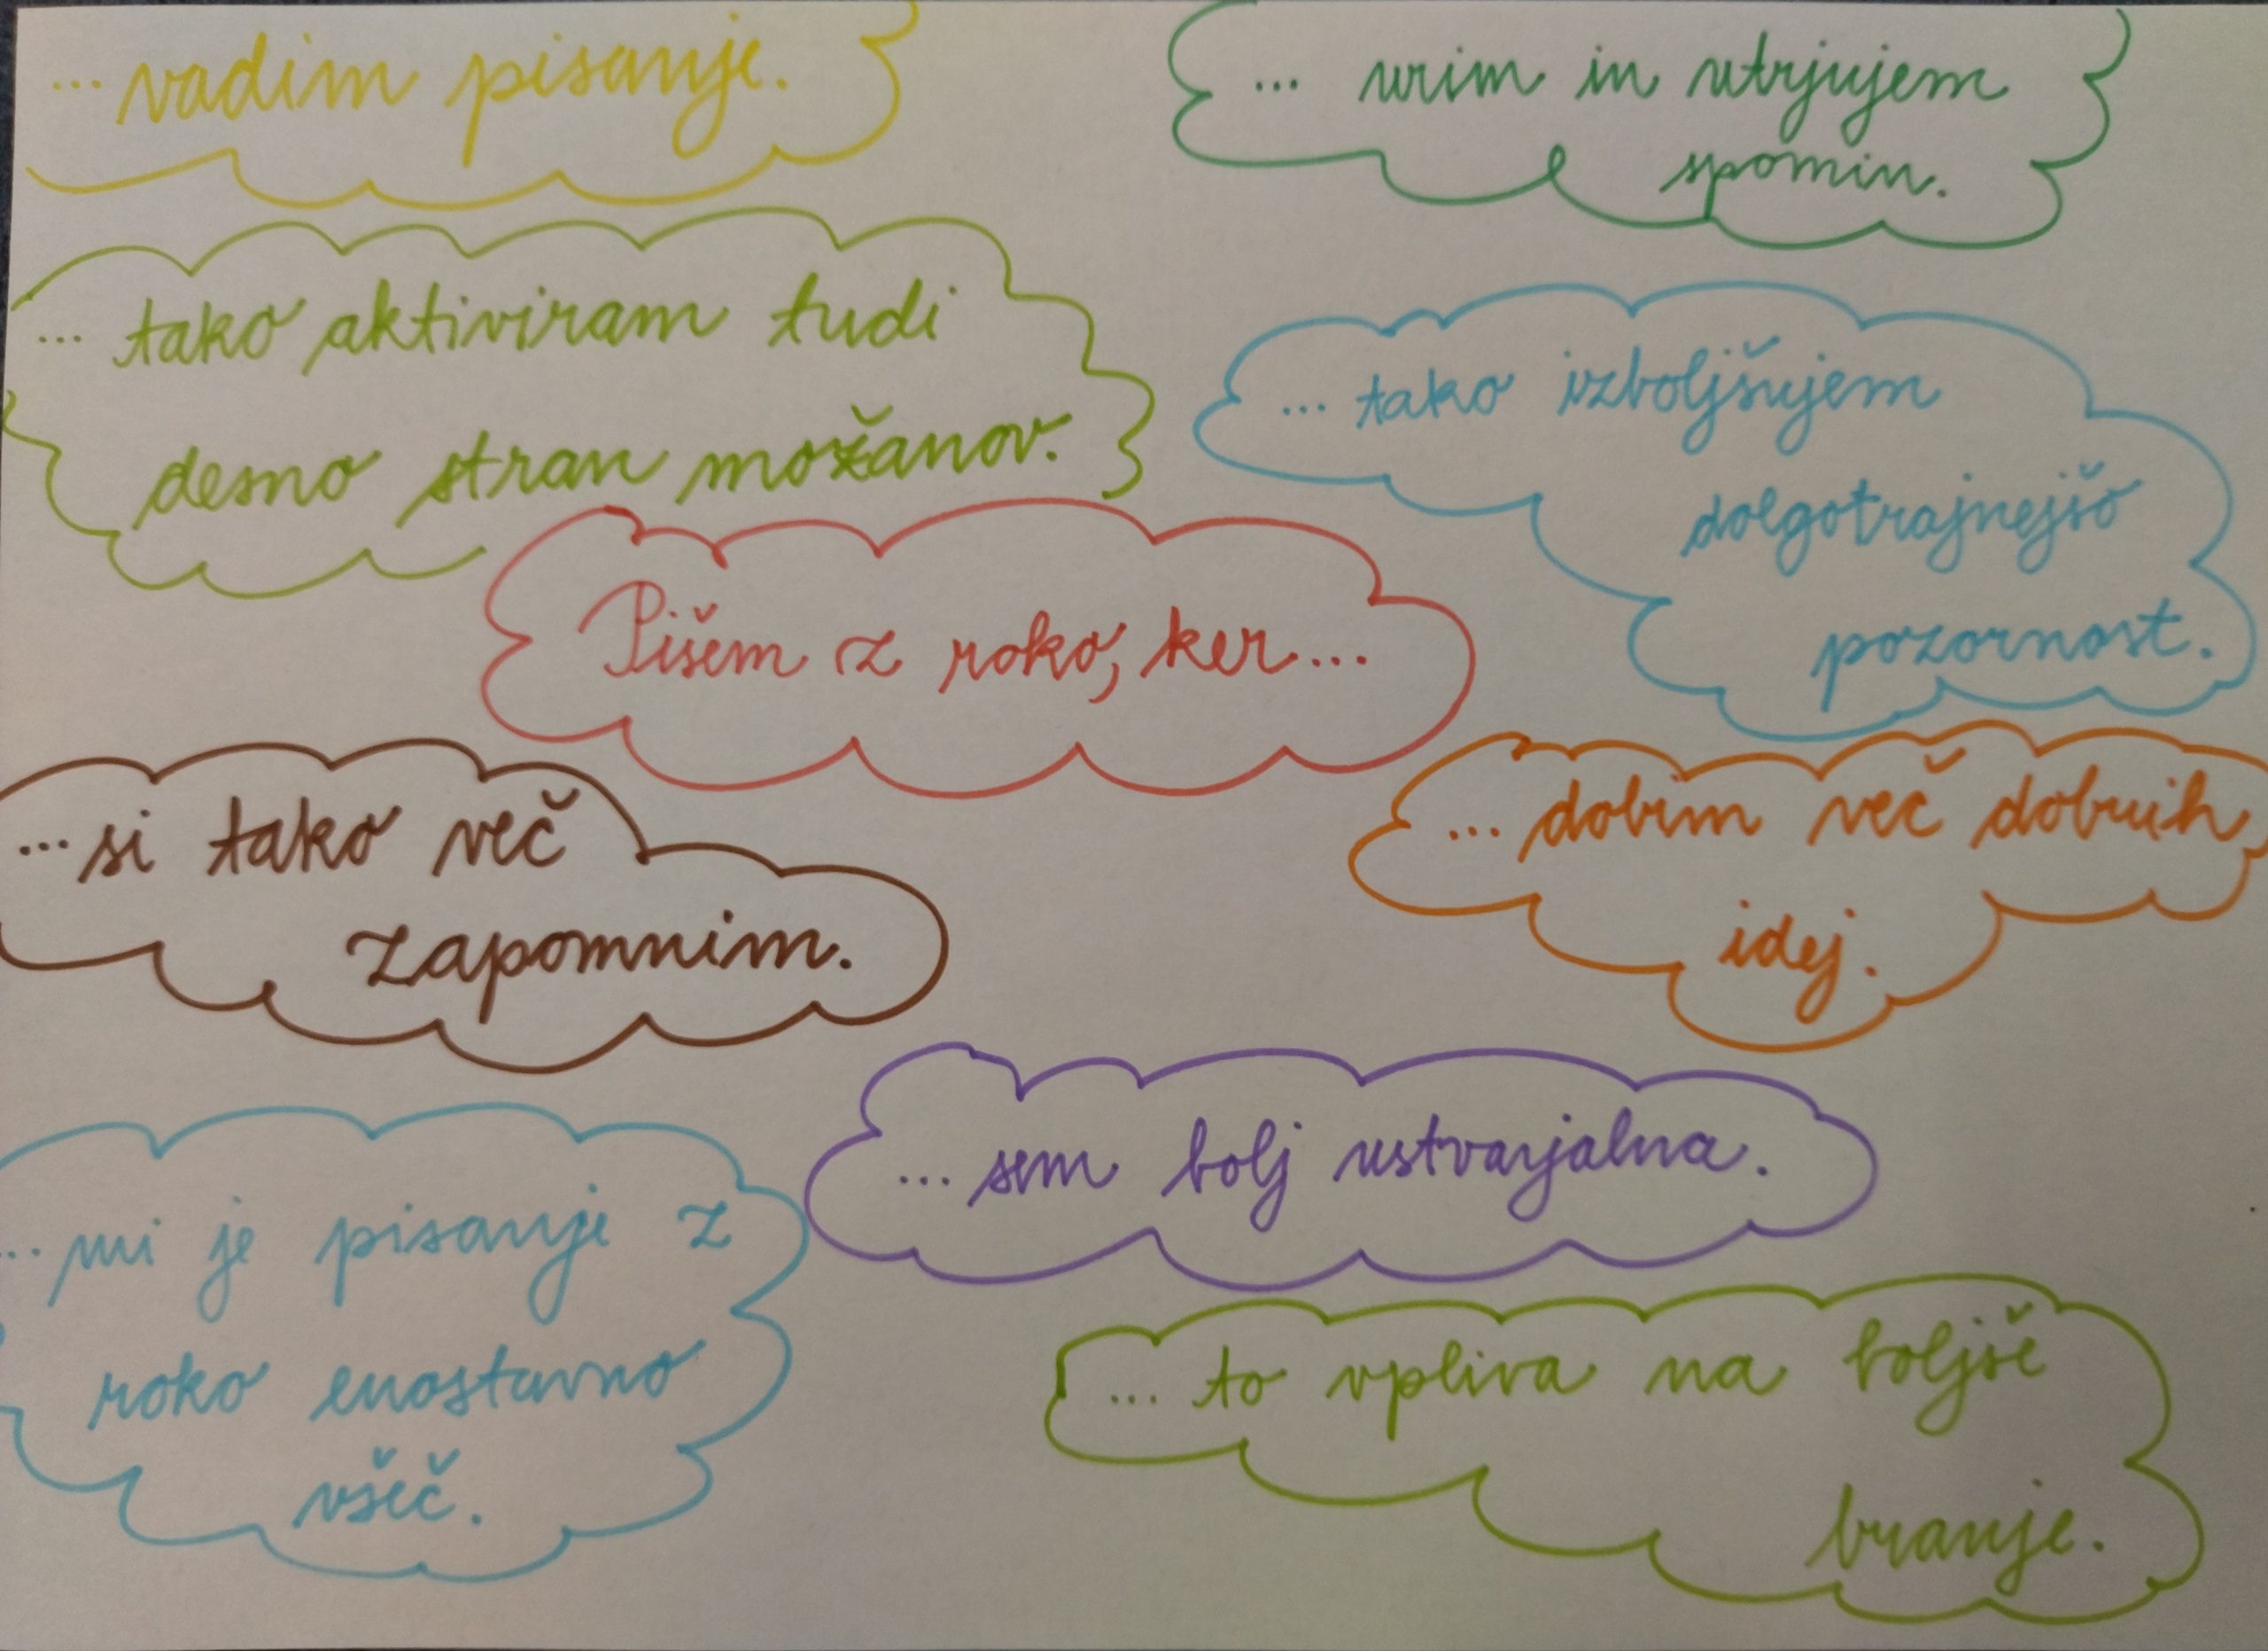 ...vadim pisanje.
... urim in utrjujem
spomin.
... tako aktiviram tudi
desno stran možanov.
... tako izboljšujem
dolgotrajnejšo
pozornost.
Pišem z roko, ker...
...si tako več
zapomnim.
... dobim več dobrih
idej.
... sem bolj ustvarjalna.
... mi je pisanje z
roko enostavno
všeč.
... to vpliva na boljše
branje.